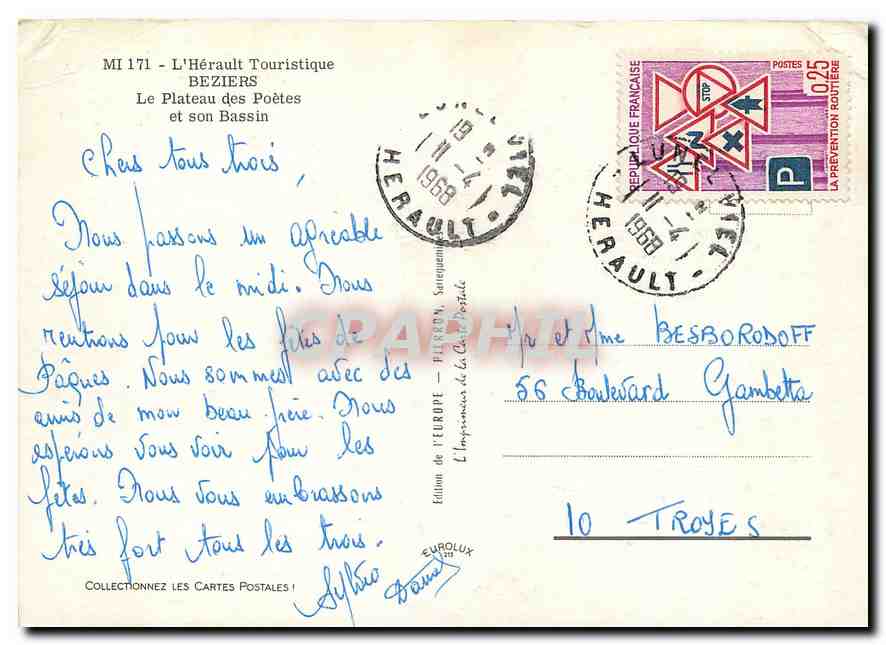 MI 171 - L'Hérault Touristique
BEZIERS
Le Plateau des Poètes
et son Bassin
Chers tous trois,
Nous passons un agréable
séjour dans le midi. Nous
rentrons pour les fêtes de
Pâques. Nous sommes avec des
amis de mon beau frère. Nous
espérons vous voir pour les
fêtes. Nous vous embrassons
très fort tous les trois.
COLLECTIONNEZ LES CARTES POSTALES !
Edition de l'EUROPE — PIERRON, Sarreguemines
L'Imprimeur de la Carte Postale
EUROLUX
CPARPHIL
19
11 -4
1968
HERAULT
REPUBLIQUE FRANÇAISE
POSTES
0,25
LA PRÉVENTION ROUTIÈRE
STOP
P
11 -4
1968
HERAULT
Mr et Mme BESBORODOFF
56 Boulevard Gambetta
10 TROYES